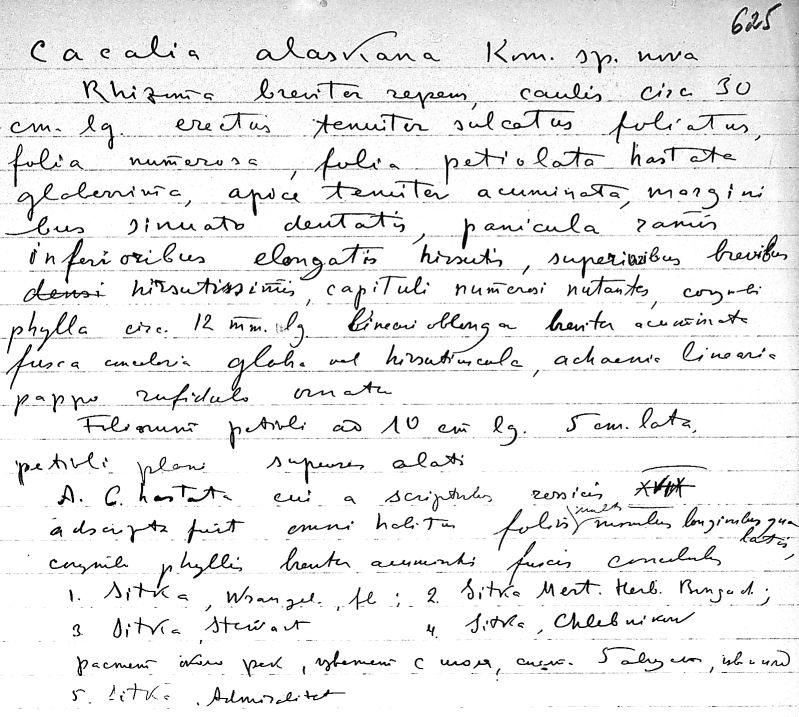 625
Cacalia alaskana Kom. sp. nova
Rhizoma breviter repens, caulis circa 30
cm. lg. erectus tenuiter sulcatus foliatus,
folia numerosa, folia petiolata hastata
glaberrima, apice tenuiter acuminata, margini
bus sinuato dentatis, panicula ramis
inferioribus elongatis hirsutis, superioribus brevibus
densi hirsutissimis, capituli numerosi nutantes, corymbi
phylla circ. 12 mm. lg. lineari oblonga breviter acuminata
fusca concoloria glabra vel hirsutiuscula, achaenia linearia
pappo rufidulo ornata
Foliorum petioli ad 10 cm lg. 5 cm. lata,
petioli plani superes alati
A. C. hastata cui a scriptoribus rossicis
adscripta fuit omni habitus foliis multo minus longioribus qua
latis,
phyllis breviter acuminatis fuscis
1. Sitka, Wrangel. fl; 2. Sitka Mert. Herb. Bongard.;
3 Sitka, Stewart 4. Sitka, Chlebnikow
растет около рек, цветет с июля,
5. Sitka, Admiralitet